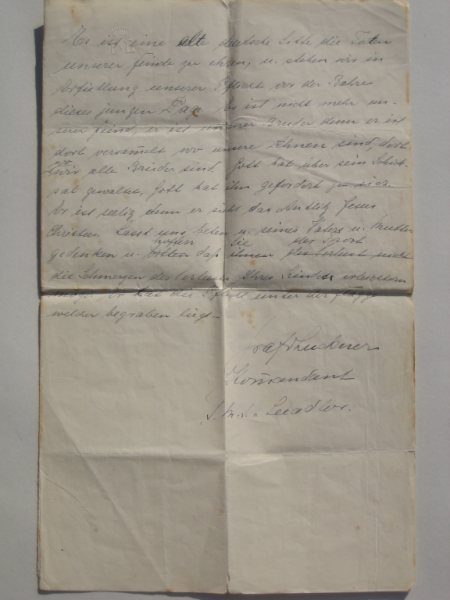 Es ist eine alte deutsche Sitte die Toten
unserer Feinde zu ehren, u. stehen wir in
Erfüllung unserer Pflicht vor der Bahre
dieses jungen Page Er ist nicht mehr un-
serer Feind, er ist unserer Bruder denn er ist
dort versammelt wo unsere Ahnen sind, dort
wo wir alle Brüder sind. Gott hat über sein Schick-
sal gewaltet, Gott hat ihn gefordert zu sich.
Er ist selig denn er sieht das Antlitz Jesus
Christus Lasst uns beten u. seines Vaters u. Mutter
gedenken u. hoffen daß ihnen
die Schmerzen des Verlustes Ihres Kindes
Er hat die unter der Flagge
welcher begraben liegt.
Graf Luckner
Kommandant
S.M.S. Seeadler.